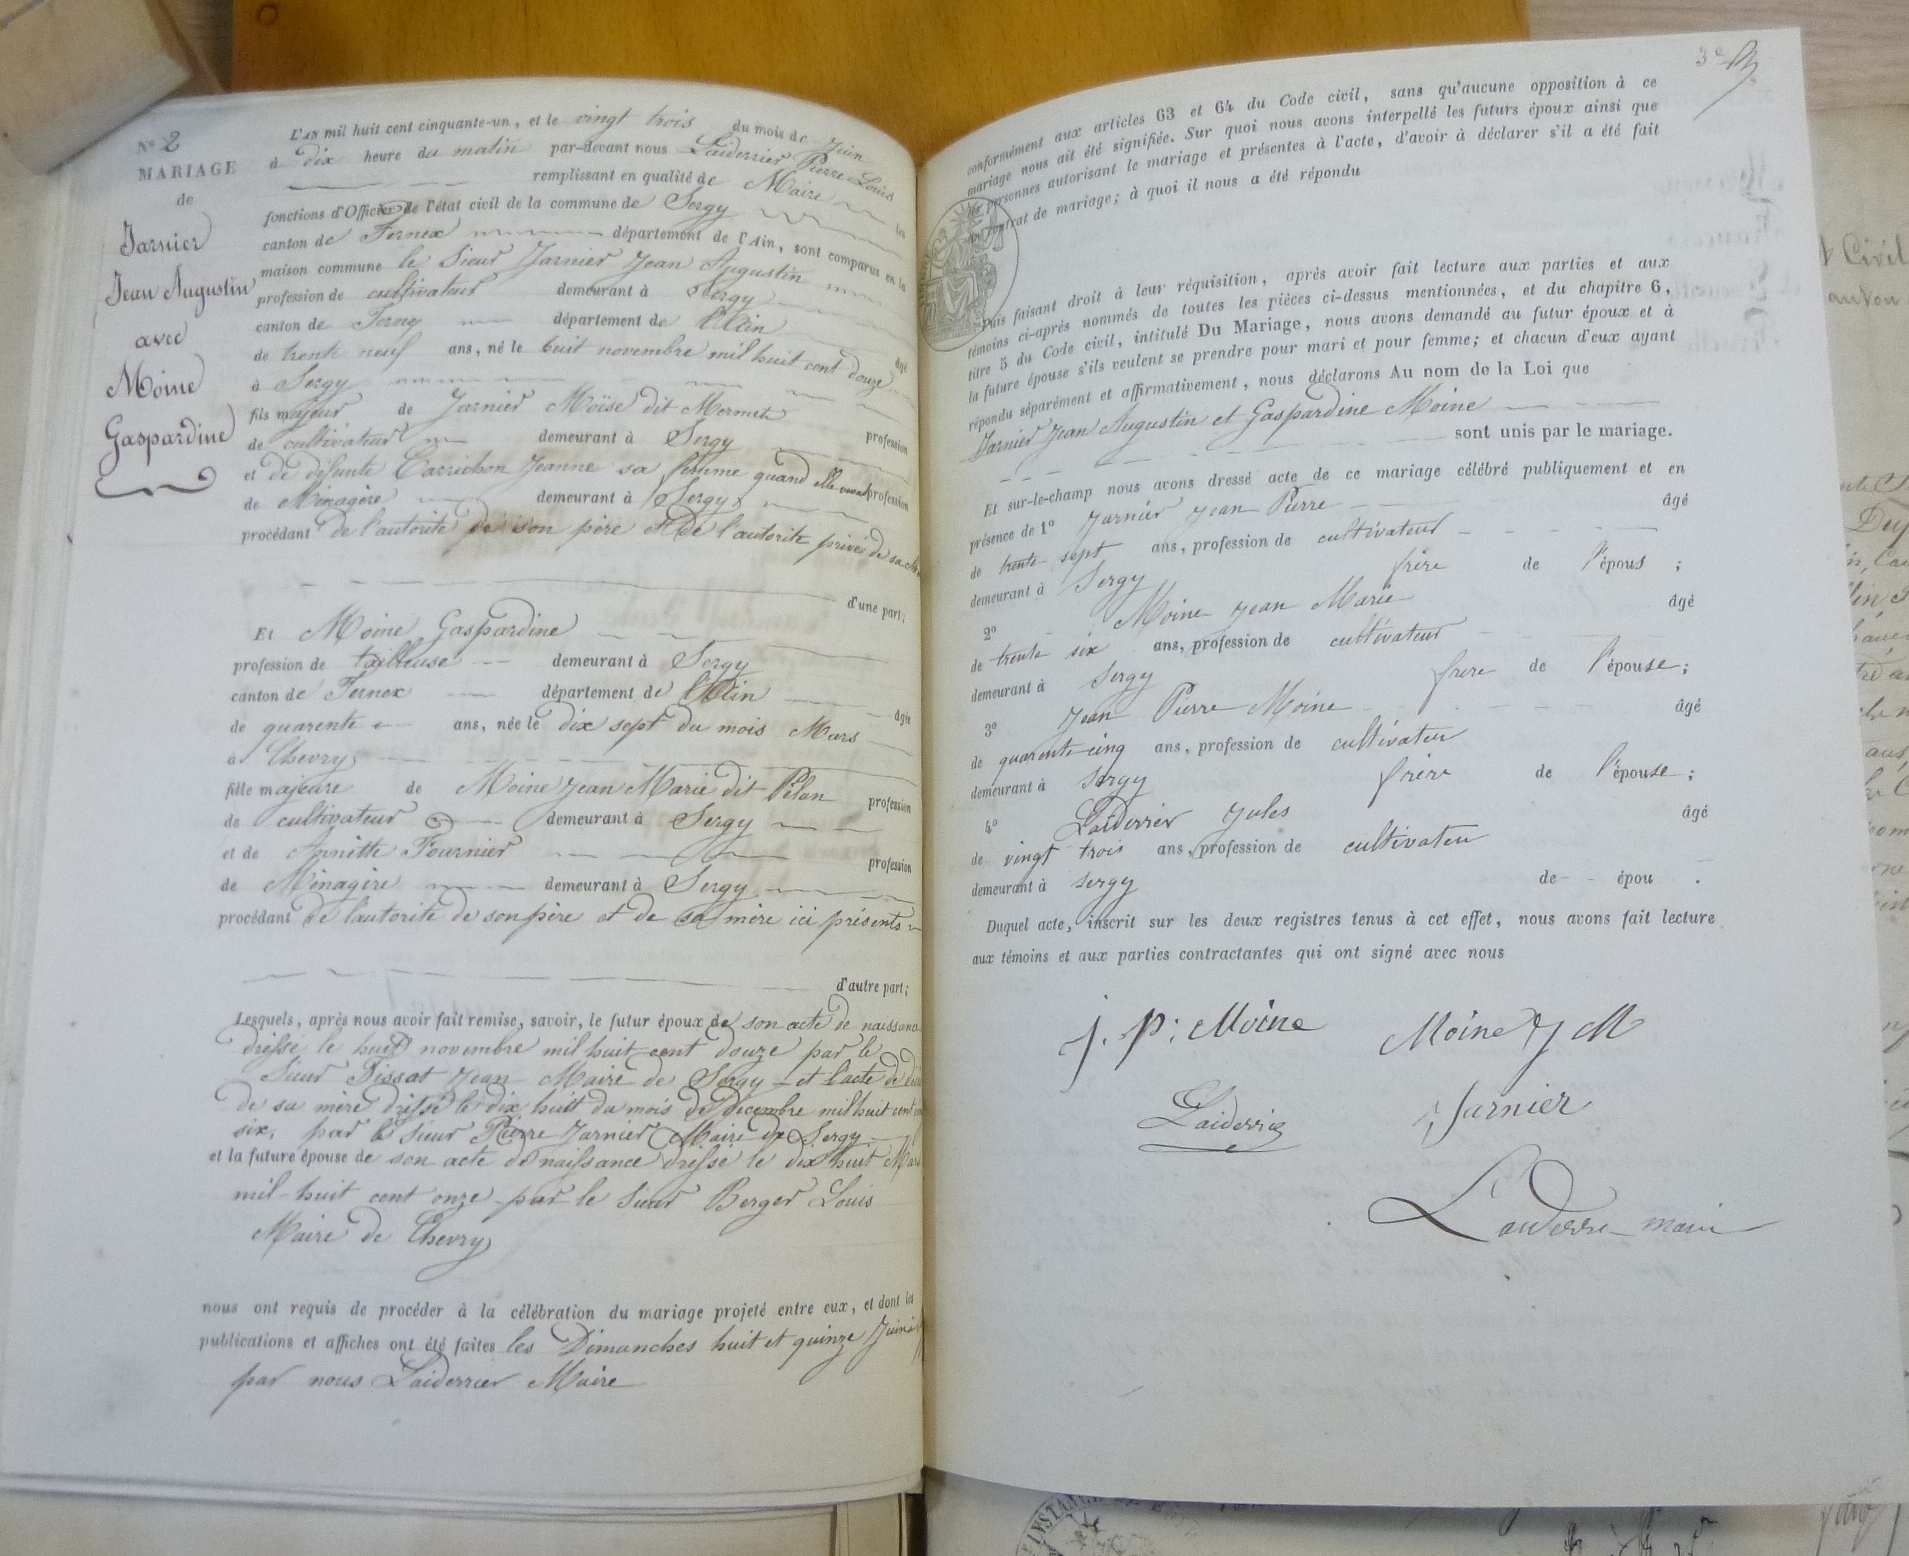 N° 2
MARIAGE
de
Jarnier
Jean Augustin
avec
Moine
Gaspardine
L'AN mil huit cent cinquante-un, et le vingt trois du mois de Juin
à dix heure du matin par-devant nous Laiderrier Pierre Louis
remplissant en qualité de Maire les
fonctions d'Officier de l'état civil de la commune de Sergy
canton de Fernex département de l'Ain, sont comparus en la
maison commune le Sieur Jarnier Jean Augustin
profession de cultivateur demeurant à Sergy
canton de Ferney département de l'Ain âgé
de trente neuf ans, né le huit novembre mil huit cent douze
à Sergy
fils majeur de Jarnier Moïse dit Mermet profession
de cultivateur demeurant à Sergy
et de défunte Carrichon Jeanne sa femme quand elle vivait profession
de Ménagère demeurant à Sergy
procédant de l'autorité de son père et de l'autorité privé de sa
d'une part;
Et Moine Gaspardine
profession de tailleuse demeurant à Sergy
canton de Fernex département de l'Ain âgée
de quarente ans, née le dix sept du mois Mars
à Chevry
fille majeure de Moine Jean Marie dit Pilan profession
de cultivateur demeurant à Sergy
et de Annette Fournier profession
de Ménagère demeurant à Sergy
procédant de l'autorité de son père et de sa mère ici présents
d'autre part;
Lesquels, après nous avoir fait remise, savoir, le futur époux de son acte de naissance
dressé le huit novembre mil huit cent douze par le
Sieur Tissot Jean Maire de Sergy et l'acte de
de sa mère dressé le dix huit du mois de décembre mil huit cent
six, par le sieur Pierre Jarnier Maire de Sergy
et la future épouse de son acte de naissance dressé le dix huit Mars
mil huit cent onze par le Sieur Berger Louis
Maire de Chevry
nous ont requis de procéder à la célébration du mariage projeté entre eux, et dont les
publications et affiches ont été faites les Dimanches huit et quinze Juin
par nous Laiderrier Maire
3e
conformément aux articles 63 et 64 du Code civil, sans qu'aucune opposition à ce
mariage nous ait été signifiée. Sur quoi nous avons interpellé les futurs époux ainsi que
les personnes autorisant le mariage et présentes à l'acte, d'avoir à déclarer s'il a été fait
un contrat de mariage; à quoi il nous a été répondu
Puis faisant droit à leur réquisition, après avoir fait lecture aux parties et aux
témoins ci-après nommés de toutes les pièces ci-dessus mentionnées, et du chapitre 6,
titre 5 du Code civil, intitulé Du Mariage, nous avons demandé au futur époux et à
la future épouse s'ils veulent se prendre pour mari et pour femme; et chacun d'eux ayant
répondu séparément et affirmativement, nous déclarons Au nom de la Loi que
Jarnier Jean Augustin et Gaspardine Moine
sont unis par le mariage.
Et sur-le-champ nous avons dressé acte de ce mariage célébré publiquement et en
présence de 1° Jarnier Jean Pierre âgé
de trente sept ans, profession de cultivateur
demeurant à Sergy frère de l'épous ;
2° Moine Jean Marie âgé
de trente six ans, profession de cultivateur
demeurant à Sergy frère de l'épouse;
3° Jean Pierre Moine âgé
de quarente cinq ans, profession de cultivateur
demeurant à Sergy frère de l'épouse;
4° Laiderrier Jules âgé
de vingt trois ans, profession de cultivateur
demeurant à Sergy de épou .
Duquel acte, inscrit sur les deux registres tenus à cet effet, nous avons fait lecture
aux témoins et aux parties contractantes qui ont signé avec nous
j. p: Moine
Moine J M
Jarnier